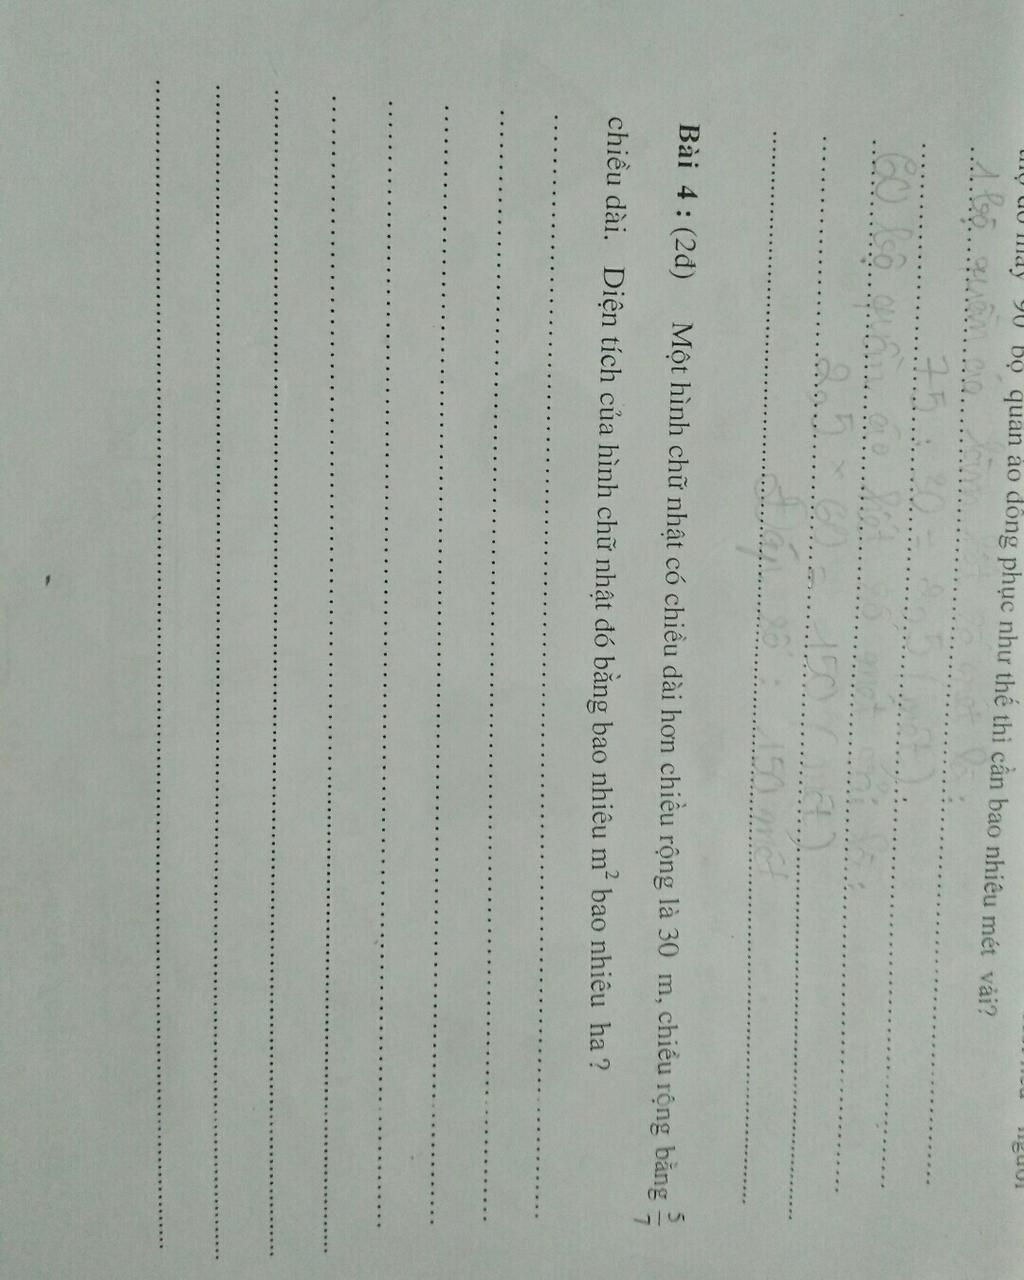 may 90 bộ quần áo đồng phục như thế thì cần bao nhiêu mét vải?
1 bộ quần áo
75 : 30 = 2,5 (mét)
60 bộ quần áo hết số mét vải là:
2,5 × 60 = 150 (mét)
Đáp số : 150 mét
Bài 4 : (2đ) Một hình chữ nhật có chiều dài hơn chiều rộng là 30 m, chiều rộng bằng 5/7
chiều dài. Diện tích của hình chữ nhật đó bằng bao nhiêu m² bao nhiêu ha ?